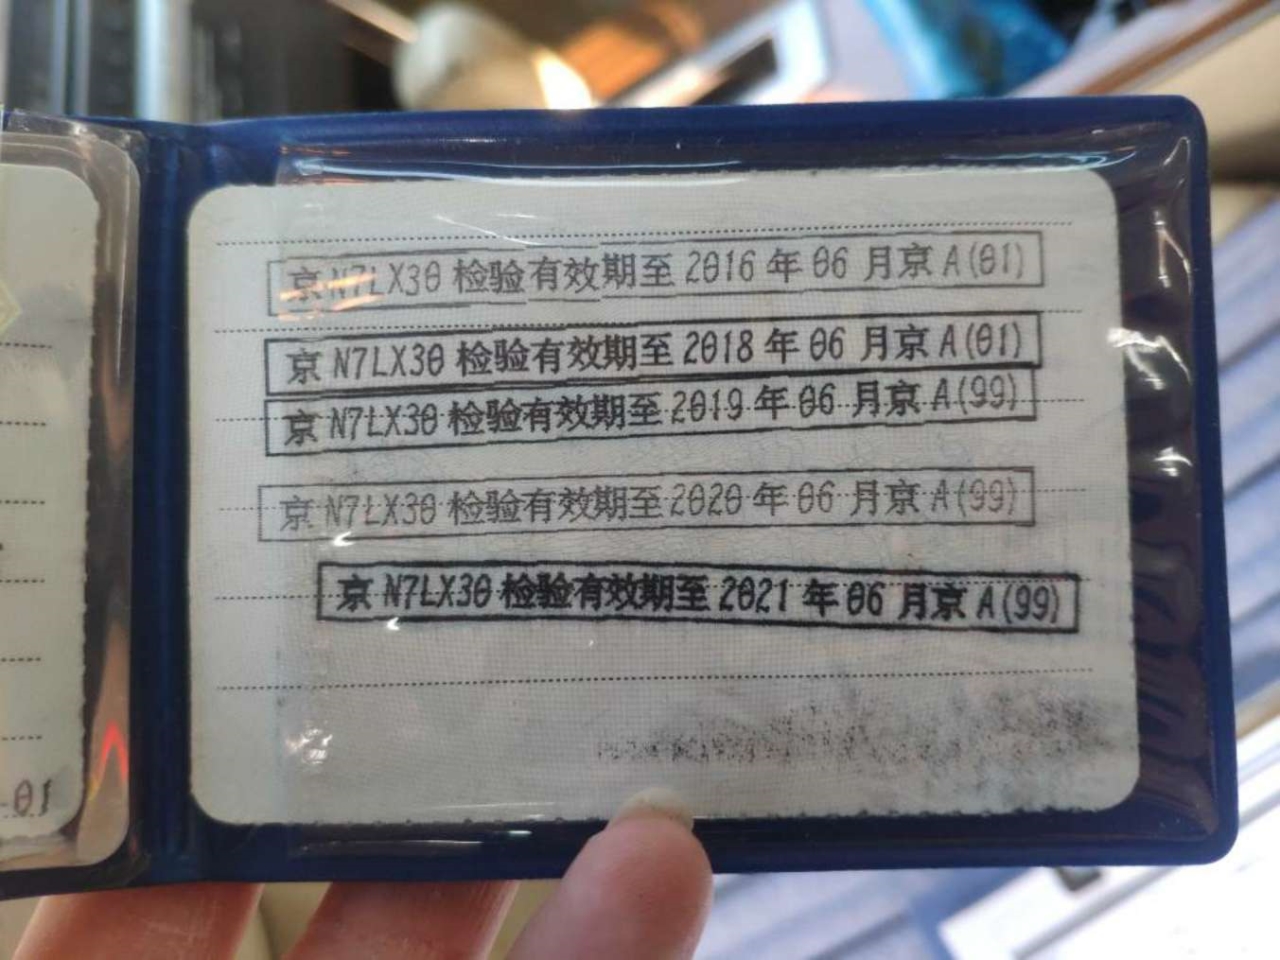 京 N7LX30 检验有效期至 2016 年 06 月京 A(01)
京 N7LX30 检验有效期至 2018 年 06 月京 A(01)
京 N7LX30 检验有效期至 2019 年 06 月京 A(99)
京 N7LX30 检验有效期至 2020 年 06 月京 A(99)
京 N7LX30 检验有效期至 2021 年 06 月京 A(99)
-01